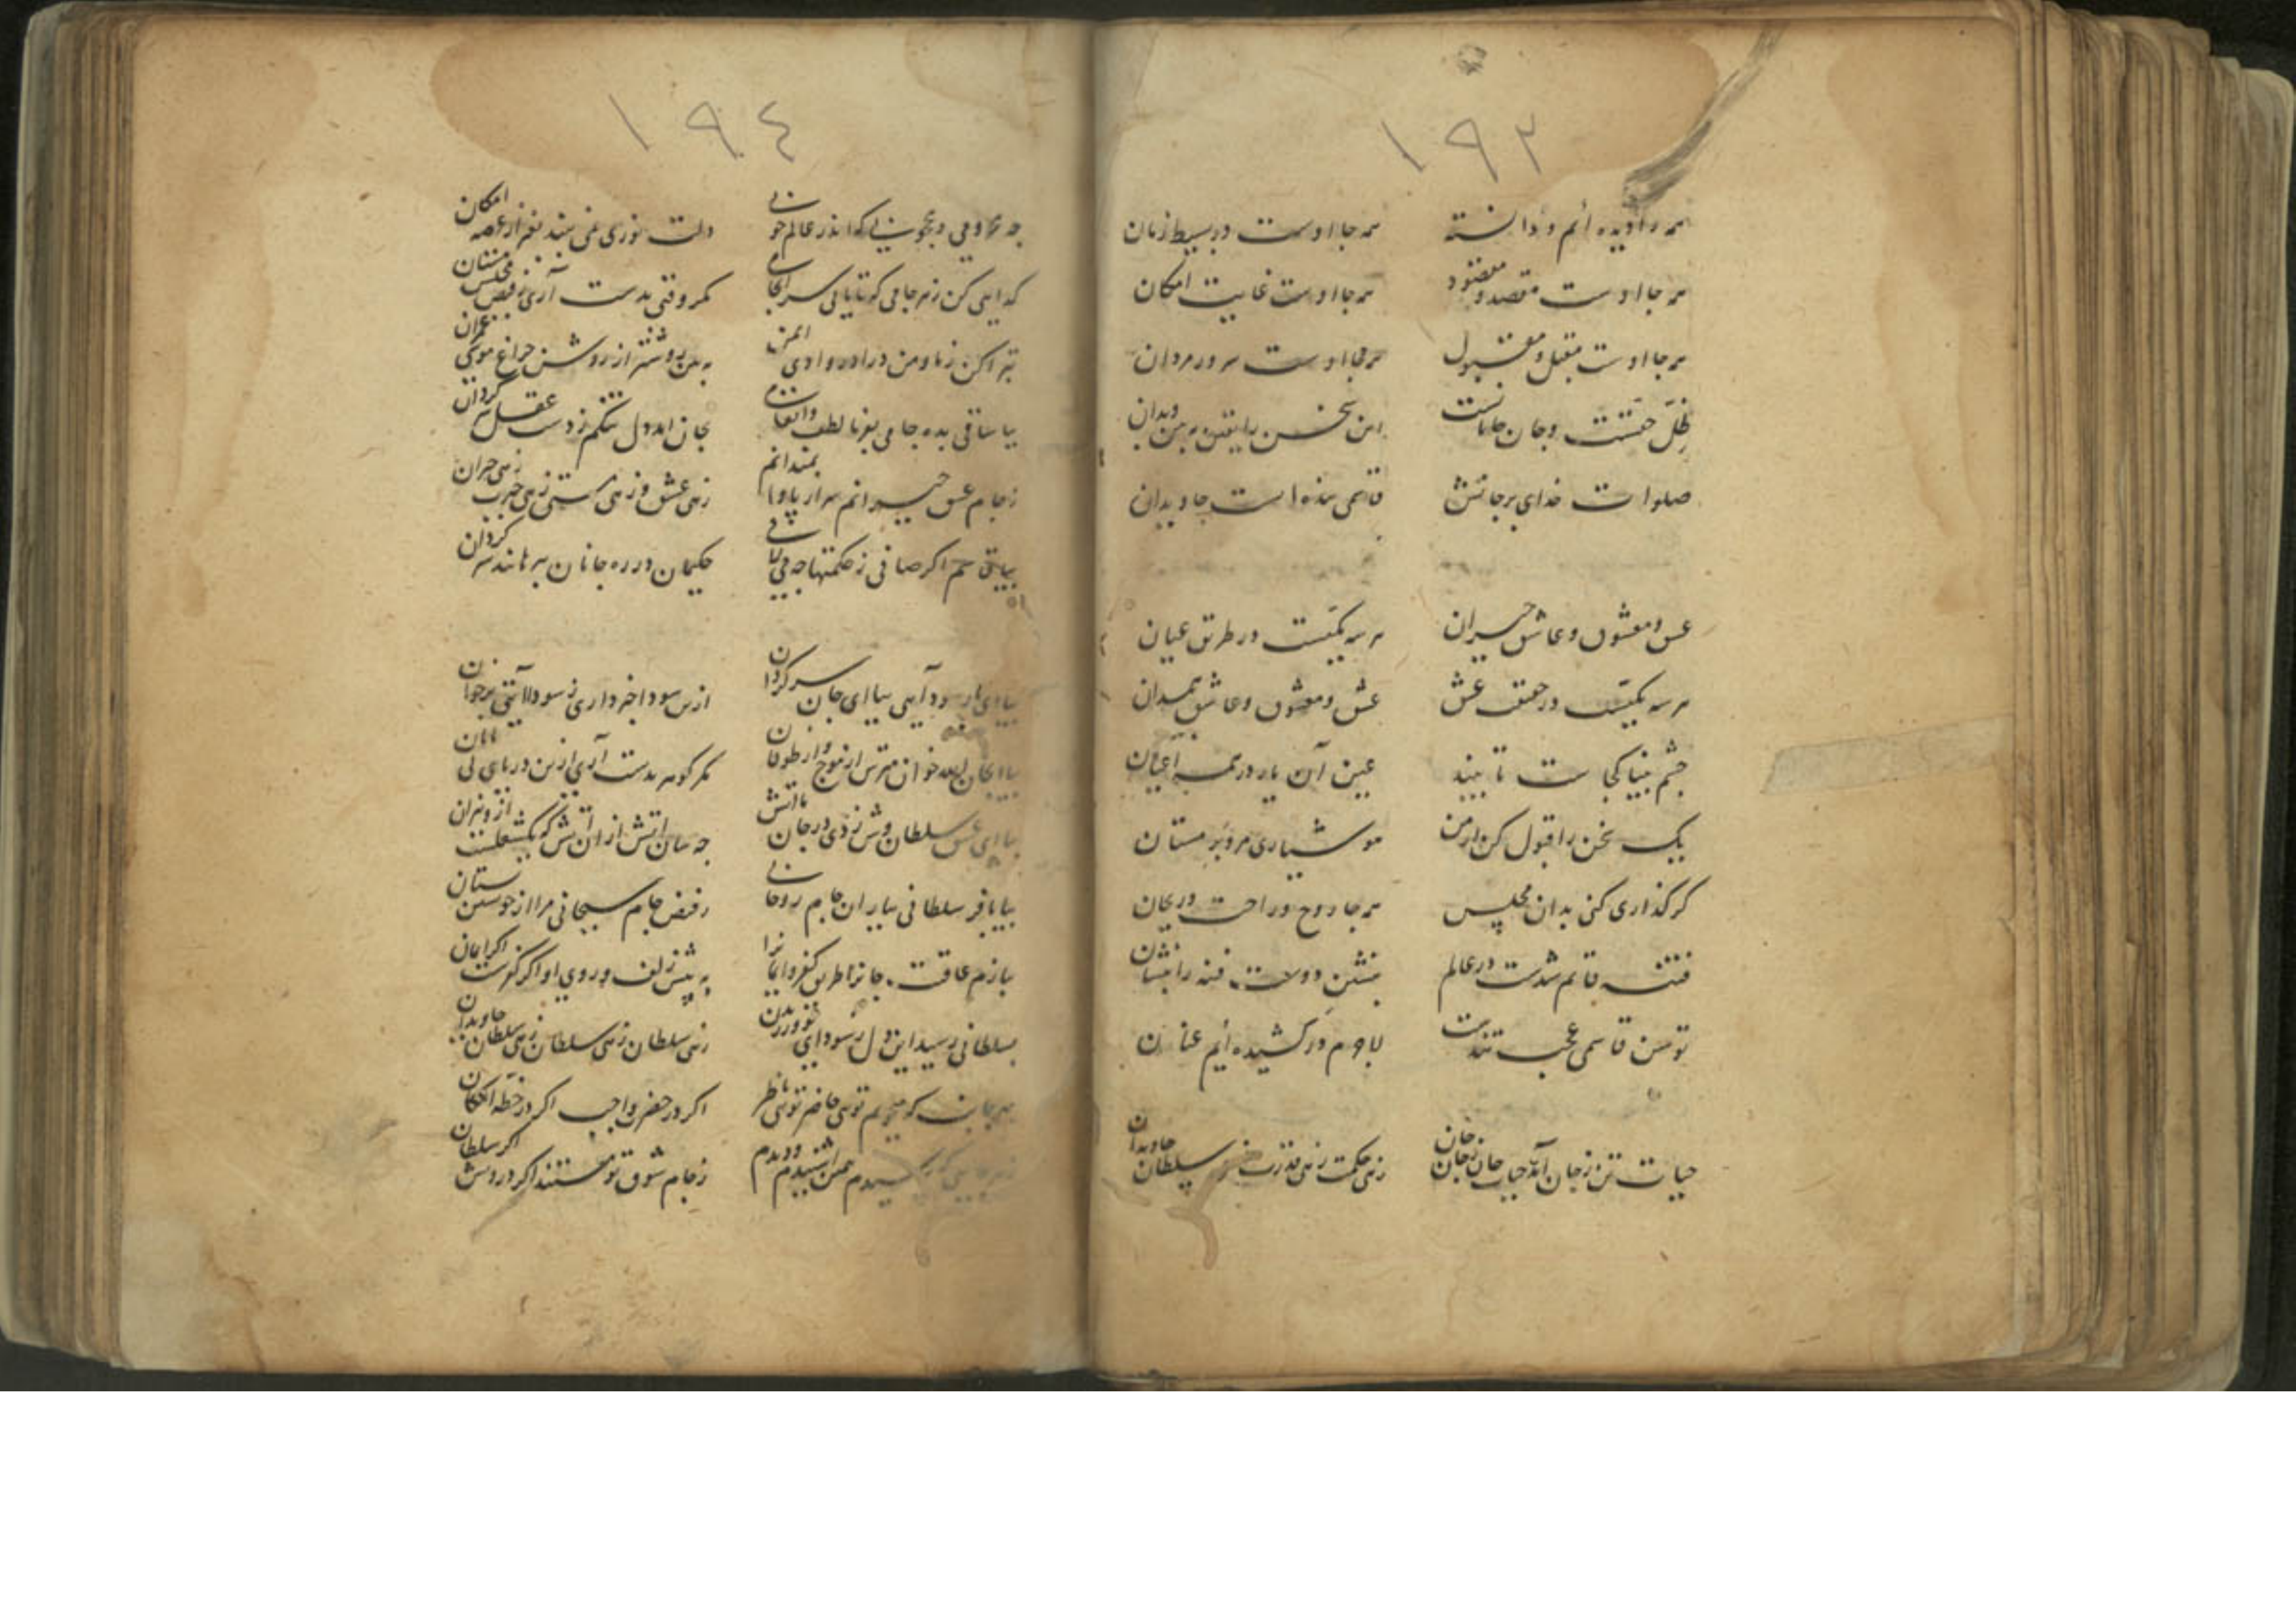 ۱۹۳
همه را دیده ایم و دانسته همه جا اوست در بسیط زمان
همه جا اوست مقصد و مقصود همه جا اوست غایت امکان
همه جا اوست مقبل و مقبول همه جا اوست سرور مردان
ظل حقست و جان جانانست این سخن را یقین ببین و بدان
صلوات خدای بر جانش قاسمی بنده است جاویدان
عشق و معشوق و عاشق حیران هر سه یکیست در طریق عیان
هر سه یکیست در حقیقت عشق عشق و معشوق و عاشق همدان
چشم بینا کجاست تا بیند عین آن یار در همه اعیان
یک سخن را قبول کن از من هوشیاری مرو بر مستان
گر گذاری کنی بدان مجلس همه جا روح و راحت و ریحان
فتنه قایم شدست در عالم بنشین دولت فتنه را بنشان
توسن قاسمی عجب تندست لاجرم در کشیده ایم عنان
حیات تن ز جان آمد حیات جان ز جان جان زهی حکمت زهی قدرت زهی سلطان جاویدان
۱۹٤
چه محرومی و محجوبی که اندر عالم خونی دلت نوری نمی بیند بغیر از عرصه امکان
گدایی کن ز هر جامی که تا یابی سرانجامی مگر وقتی بدست آری ز فیض مجلس مستان
تبرا کن ز ما و من درا در وادی ایمن ببین روشنتر از روشن چراغ موسی عمران
بیا ساقی بده جامی بفرما لطف و انعامی بجان آمد دل تنگم ز دست عقل سرگردان
ز جام عشق حیرانم سر از پا وا نمیدانم زهی عشق و زهی مستی زهی حیرت زهی حیران
بیا قاسم اگر صافی ز حکمتها چه می لافی حکیمان در ره جانان همه ماندند سرگردان
بیا ای یار سودایی بیا ای جان سرگردان ازین سودا خبر داری ز سودا آیتی برخوان
مترس از موج و از طوفان مگر گوهر بدست آری ازین دریای بی پایان
بیا ای عشق سلطان وش زدی در جان ما آتش چه سان آتش از آن آتش که یکشعلست ازو نیران
بیا با فر سلطانی بیار آن جام روحانی ز فیض جام سبحانی مرا از خویشتن بستان
به پیش زلف و روی او اگر کفرست اگر ایمان
بسلطانی رسید این دل ز سودای تو ورزیدن زهی سلطان زهی سلطان زهی سلطان جاویدان
بهر جانب که می بینم تویی حاضر تویی ناظر اگر در حضرت واجب اگر در خطه امکان
بهر جایی که رسیدم همین اشنیدم و دیدم ز جام شوق تو مستند اگر درویش اگر سلطان